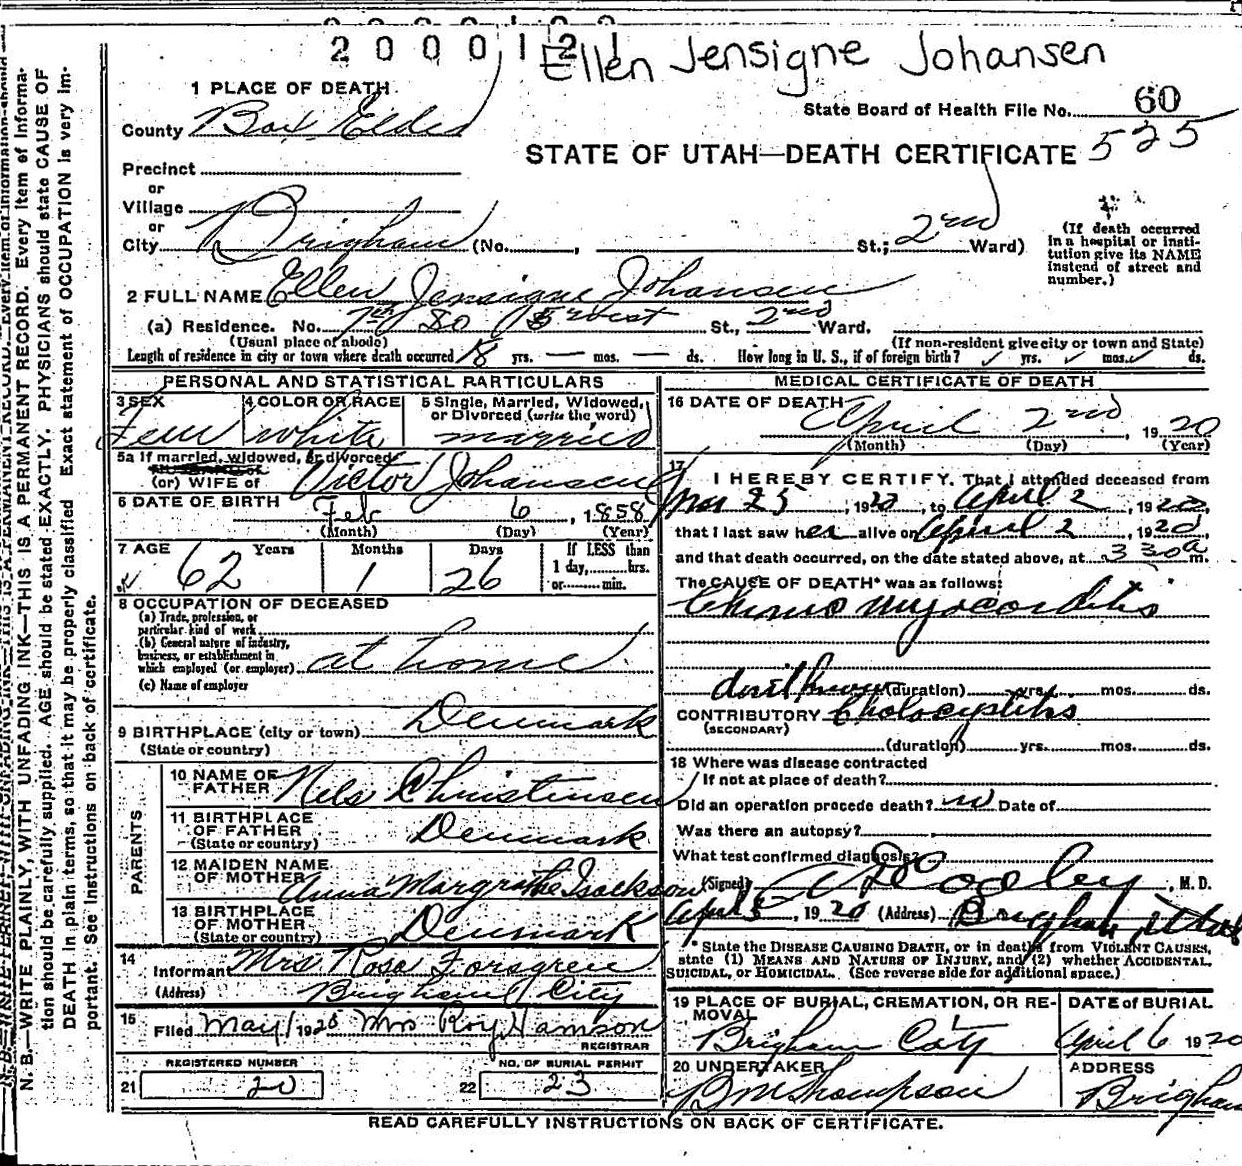 2000121
Ellen Jensigne Johansen
1 PLACE OF DEATH
State Board of Health File No. 60
County Box Elder
525
STATE OF UTAH—DEATH CERTIFICATE
Precinct
or
Village
or
City Brigham (No. , St.; 2nd Ward)
(If death occurred in a hospital or institution give its NAME instead of street and number.)
2 FULL NAME Ellen Jensigne Johansen
(a) Residence. No. 7th So 5 West St., 2nd Ward.
(Usual place of abode)
(If non-resident give city or town and State)
Length of residence in city or town where death occurred yrs. — mos. — ds. How long in U. S., if of foreign birth? yrs. mos. ds.
PERSONAL AND STATISTICAL PARTICULARS
3 SEX
4 COLOR OR RACE
5 Single, Married, Widowed, or Divorced (write the word)
Fem white married
5a If married, widowed, or divorced
HUSBAND of
(or) WIFE of Victor Johansen
6 DATE OF BIRTH Feb 6, 1858
(Month) (Day) (Year)
7 AGE Years Months Days If LESS than 1 day,......hrs. or......min.
62 1 26
8 OCCUPATION OF DECEASED
(a) Trade, profession, or particular kind of work
(b) General nature of industry, business, or establishment in which employed (or employer) at home
(c) Name of employer
9 BIRTHPLACE (city or town) Denmark
(State or country)
PARENTS
10 NAME OF FATHER Nels Christensen
11 BIRTHPLACE OF FATHER Denmark
(State or country)
12 MAIDEN NAME OF MOTHER Anna Margrathe Isackson
13 BIRTHPLACE OF MOTHER Denmark
(State or country)
14 Informant Mrs Rosa Forsgren
(Address) Brigham City
15 Filed May 1 1920 Mrs Roy Hamson
REGISTRAR
REGISTERED NUMBER
21 20
NO. OF BURIAL PERMIT
22 23
MEDICAL CERTIFICATE OF DEATH
16 DATE OF DEATH
April 2nd, 1920
(Month) (Day) (Year)
17 I HEREBY CERTIFY, That I attended deceased from
Mar 25, 1920, to April 2, 1920,
that I last saw her alive on April 2, 1920,
and that death occurred, on the date stated above, at 3 30a m.
The CAUSE OF DEATH* was as follows:
Chronic Myocarditis
dont know (duration) yrs. mos. ds.
CONTRIBUTORY Cholocystitis
(SECONDARY)
(duration) yrs. mos. ds.
18 Where was disease contracted
If not at place of death?
Did an operation precede death? no Date of
Was there an autopsy?
What test confirmed diagnosis?
(Signed) Cooley, M. D.
April 5, 1920 (Address) Brigham, Utah
* State the DISEASE CAUSING DEATH, or in deaths from VIOLENT CAUSES, state (1) MEANS AND NATURE OF INJURY, and (2) whether ACCIDENTAL, SUICIDAL, or HOMICIDAL. (See reverse side for additional space.)
19 PLACE OF BURIAL, CREMATION, OR REMOVAL
DATE of BURIAL
Brigham City
April 6 1920
20 UNDERTAKER
ADDRESS
Thompson
Brigham
READ CAREFULLY INSTRUCTIONS ON BACK OF CERTIFICATE.
N. B.—WRITE PLAINLY, WITH UNFADING INK—THIS IS A PERMANENT RECORD. Every item of information should be carefully supplied. AGE should be stated EXACTLY. PHYSICIANS should state CAUSE OF DEATH in plain terms, so that it may be properly classified. Exact statement of OCCUPATION is very important. See instructions on back of certificate.